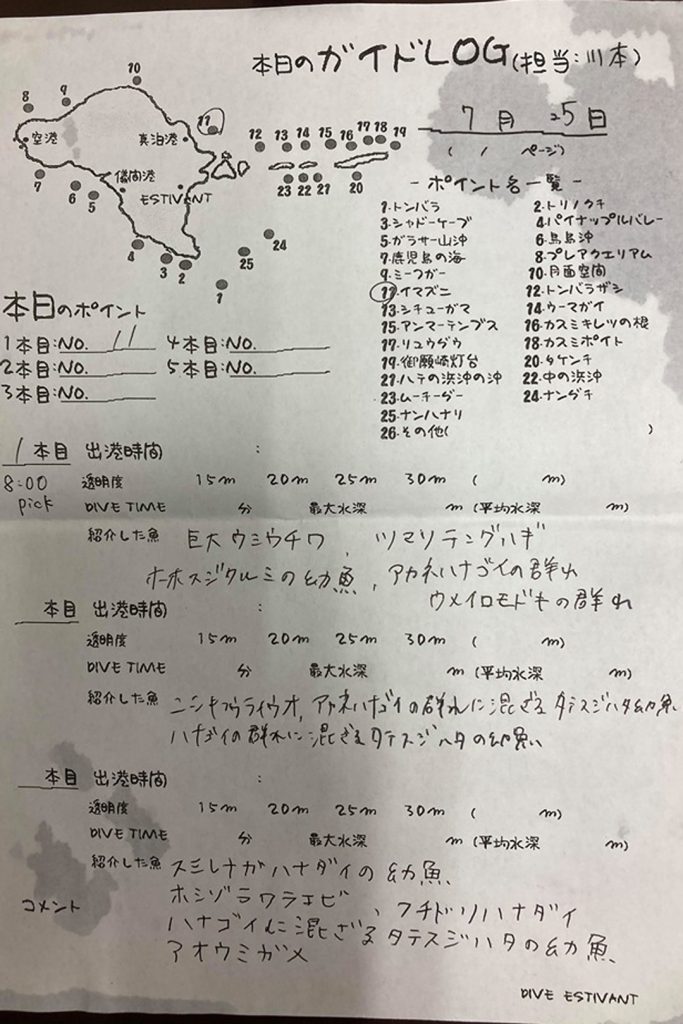 本日のガイドLOG(担当:川本)
7月 25日
( / ページ)
10
9
8
空港
真泊港
11
12 13 14 15 16 17 18 19
23 22 21 20
儀間港
ESTIVANT
7
6
5
4
3
2
1
25
24
-ポイント名一覧-
1.トンバラ 2.トリノクチ
3.シャドーケーブ 4.パイナップルバレー
5.ガラサー山沖 6.鳥島沖
7.鹿児島の海 8.プレアクエリアム
9.ミーフガー 10.月面空間
11.イマズニ 12.トンバラザシ
13.シチューガマ 14.ウーマガイ
15.アンマーテンブス 16.カスミキレツの根
17.リュウグウ 18.カスミポイト
19.御願崎灯台 20.タケンチ
21.ハテの浜沖の沖 22.中の浜沖
23.ムーチーグー 24.ナングチ
25.ナンハナリ
26.その他( )
本日のポイント
1本目:NO. 11 4本目:NO.
2本目:NO. 5本目:NO.
3本目:NO.
1本目 出港時間 :
8:00
pick
透明度 15m 20m 25m 30m ( m)
DIVE TIME 分 最大水深 m (平均水深 m)
紹介した魚 巨大ウミウチワ、ツマリテングハギ
ホホスジタルミの幼魚、アカネハナゴイの群れ
ウメイロモドキの群れ
本目 出港時間 :
透明度 15m 20m 25m 30m ( m)
DIVE TIME 分 最大水深 m (平均水深 m)
紹介した魚 ニシキフウライウオ,アカネハナゴイの群れに混ざるタテスジハタ幼魚
ハナゴイの群れに混ざるタテスジハタの幼魚
本目 出港時間 :
透明度 15m 20m 25m 30m ( m)
DIVE TIME 分 最大水深 m (平均水深 m)
紹介した魚 スミレナガハナダイの幼魚
ホシゾラワラエビ、フチドリハナダイ
コメント
ハナゴイに混ざるタテスジハタの幼魚
アオウミガメ
DIVE ESTIVANT